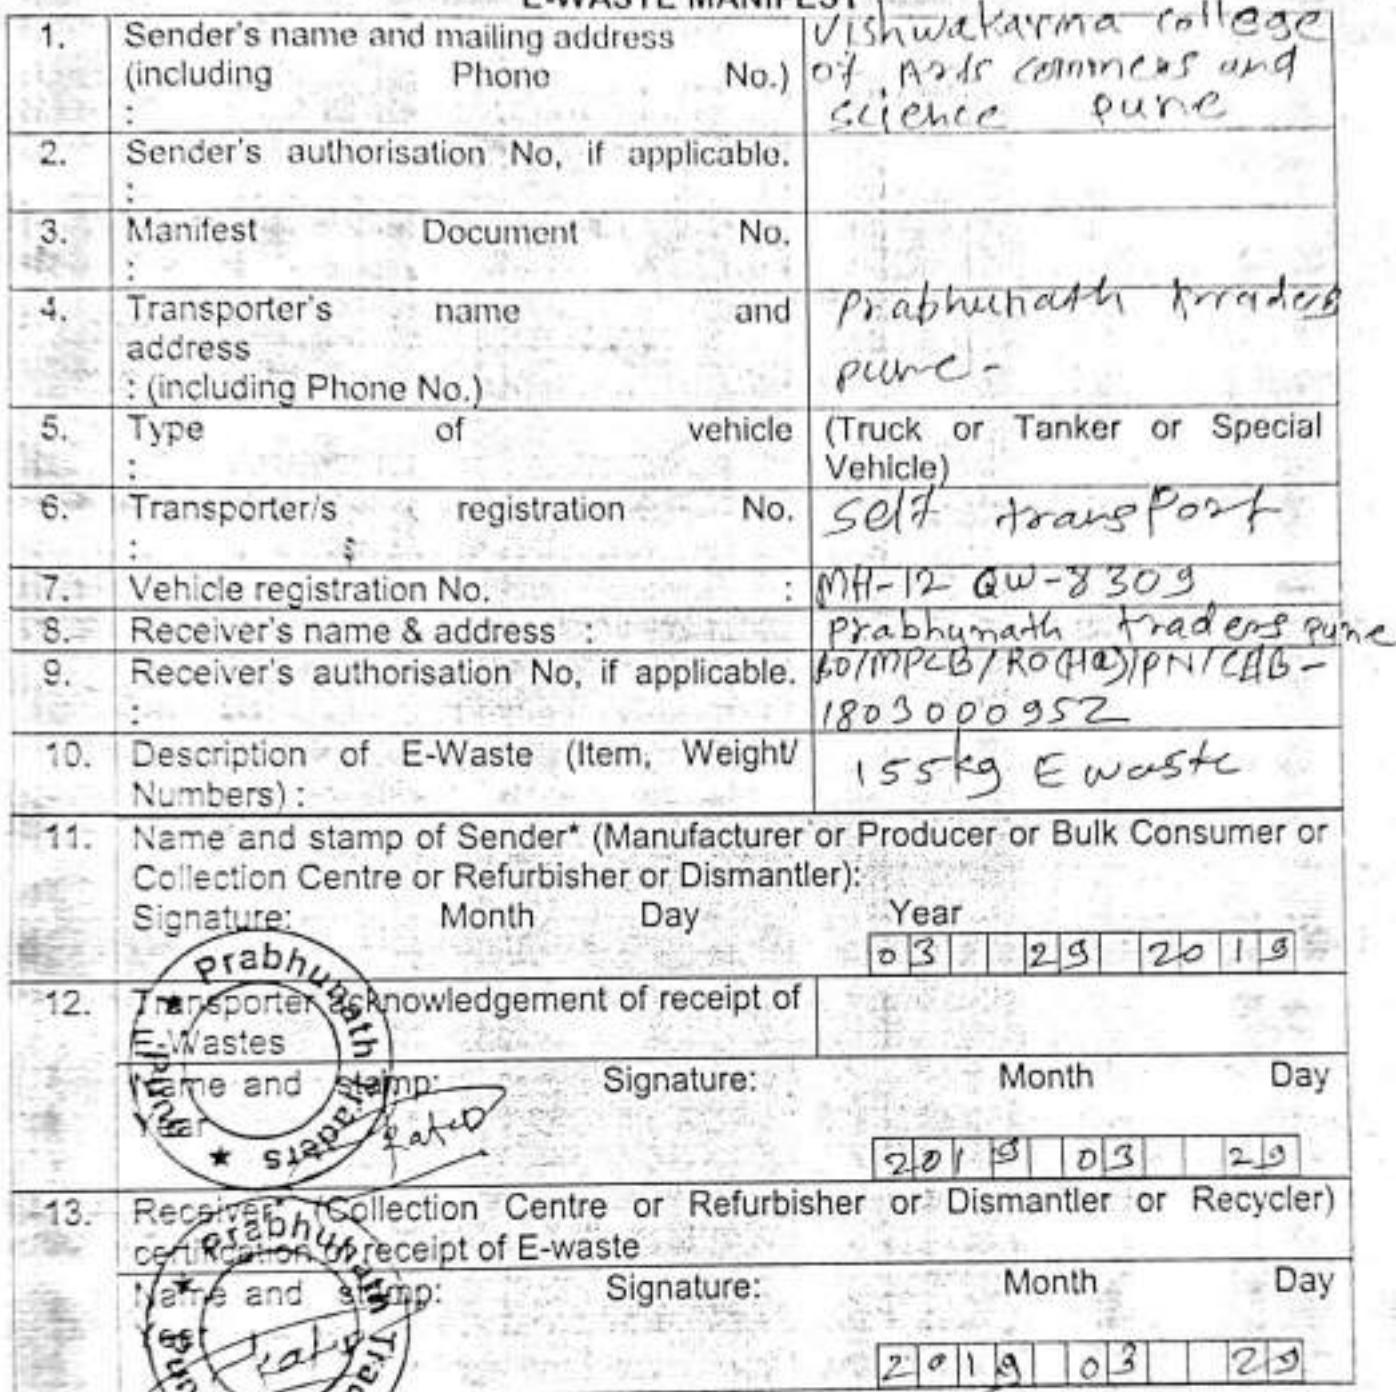 E-WASTE MANIFEST
1. Sender's name and mailing address
(including Phone No.)
:
Vishwakarma college
of Arts commens and
science pune
2. Sender's authorisation No, if applicable.
:
3. Manifest Document No.
:
4. Transporter's name and
address
: (including Phone No.)
Prabhunath trraders
pune-
5. Type of vehicle
:
(Truck or Tanker or Special
Vehicle)
6. Transporter/s registration No.
:
self transport
7. Vehicle registration No. :
MH-12 QW-8309
8. Receiver's name & address :
Prabhunath traders pune
9. Receiver's authorisation No, if applicable.
:
/MPCB/RO(HQ)/PN/
1803000952
10. Description of E-Waste (Item, Weight/
Numbers) :
155kg E waste
11. Name and stamp of Sender* (Manufacturer or Producer or Bulk Consumer or
Collection Centre or Refurbisher or Dismantler):
Signature: Month Day Year
03 29 2019
Prabhunath Traders
Pune
12. Transporter acknowledgement of receipt of
E-Wastes
Name and stamp: Signature: Month Day
Year
2019 03 29
13. Receiver* (Collection Centre or Refurbisher or Dismantler or Recycler)
certification of receipt of E-waste
Prabhunath
Name and stamp: Signature: Month Day
Year
2019 03 29